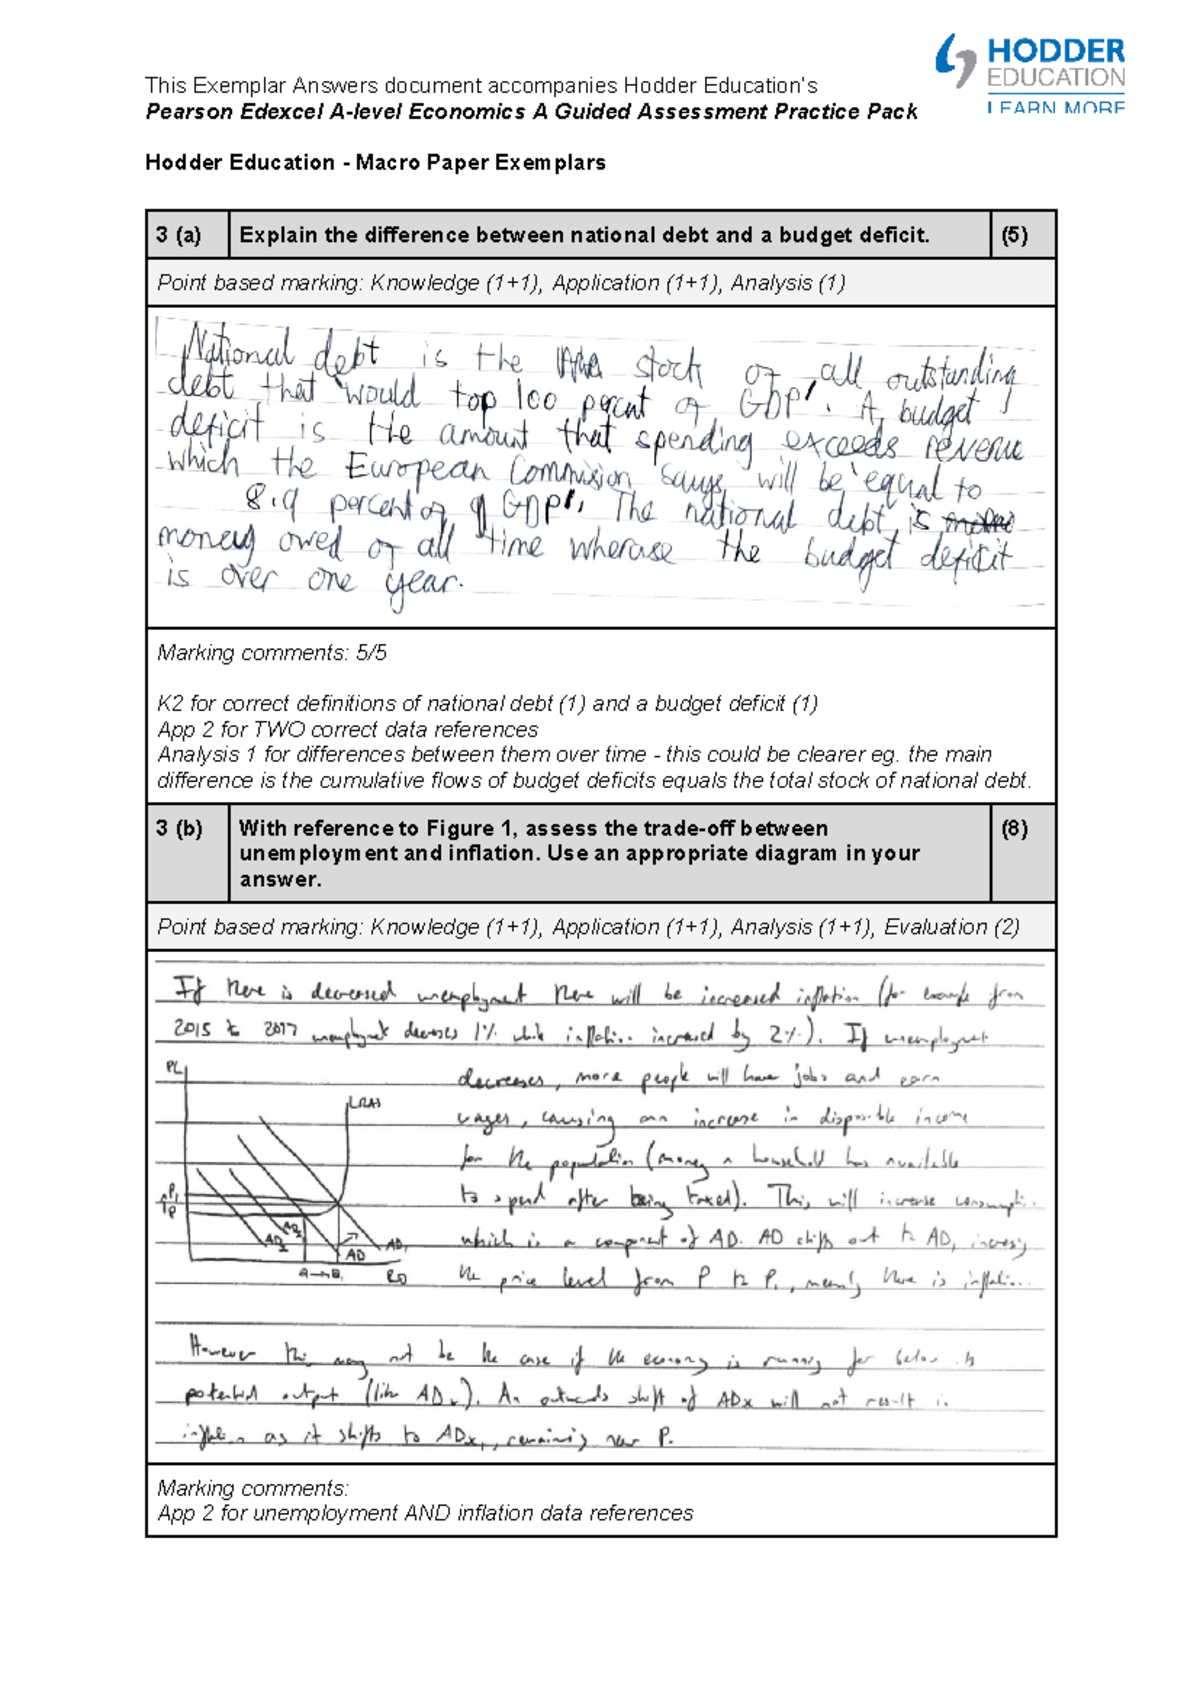 HODDER
EDUCATION
LEARN MORE
This Exemplar Answers document accompanies Hodder Education's
Pearson Edexcel A-level Economics A Guided Assessment Practice Pack
Hodder Education - Macro Paper Exemplars
3 (a) Explain the difference between national debt and a budget deficit. (5)
Point based marking: Knowledge (1+1), Application (1+1), Analysis (1)
National debt is the stock of all outstanding
debt that 'would top 100 percent of GDP'. A budget
deficit is the amount that spending exceeds revenue
which the European Commision says 'will be equal to
8.9 percent of GDP'. The national debt is
money owed of all time wherase the budget deficit
is over one year.
Marking comments: 5/5
K2 for correct definitions of national debt (1) and a budget deficit (1)
App 2 for TWO correct data references
Analysis 1 for differences between them over time - this could be clearer eg. the main
difference is the cumulative flows of budget deficits equals the total stock of national debt.
3 (b) With reference to Figure 1, assess the trade-off between (8)
unemployment and inflation. Use an appropriate diagram in your
answer.
Point based marking: Knowledge (1+1), Application (1+1), Analysis (1+1), Evaluation (2)
If there is decreased unemployment there will be increased inflation (for example from
2015 to 2017 unemployment decreases 1% while inflation increased by 2%). If unemployment
decreases, more people will have jobs and earn
wages, causing an increase in disposable income
for the population (money a household has available
to spend after being taxed). This will increase consumption
which is a component of AD. AD shifts out to AD1 increasing
the price level from P to P1, meaning there is inflation.
PL
LRAS
P1
P
AD
AD1
However this may not be the case if the economy is running far below its
potential output (like ADx). An outwards shift of ADx will not result in
inflation as it shifts to ADx1, remaining near P.
Marking comments:
App 2 for unemployment AND inflation data references